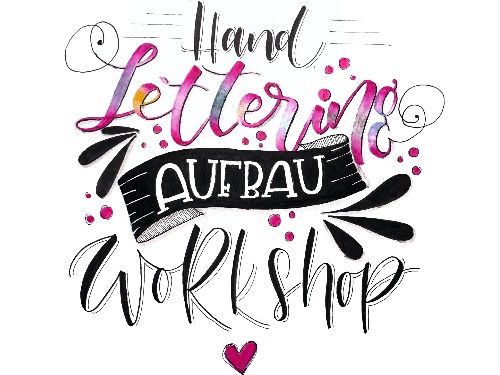 Hand
Lettering
AUFBAU
Workshop